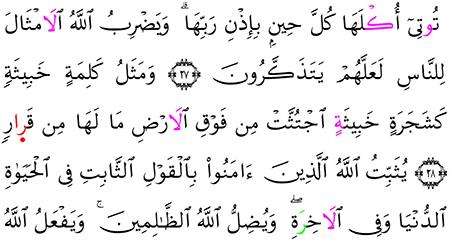 تُوتِىٓ أُكْلَهَا كُلَّ حِينِۭ بِإِذْنِ رَبِّهَا ۗ وَيَضْرِبُ اُ۬للَّهُ اُ۬لَامْثَالَ
لِلنَّاسِ لَعَلَّهُمْ يَتَذَكَّرُونَ ۝٢٧ وَمَثَلُ كَلِمَةٍ خَبِيثَةٖ
كَشَجَرَةٍ خَبِيثَةٍ اِ۟جْتُثَّتْ مِن فَوْقِ اِ۬لَارْضِ مَا لَهَا مِن قَر۪ارٖ
۝٢٨ يُثَبِّتُ اُ۬للَّهُ اُ۬لَّذِينَ ءَامَنُواْ بِالْقَوْلِ اِ۬لثَّابِتِ فِى اِ۬لْحَيَوٰةِ
اِ۬لدُّنْيَا وَفِى اِ۬لَاخِرَةِ ۖ وَيُضِلُّ اُ۬للَّهُ اُ۬لظَّٰلِمِينَ ۚ وَيَفْعَلُ اُ۬للَّهُ